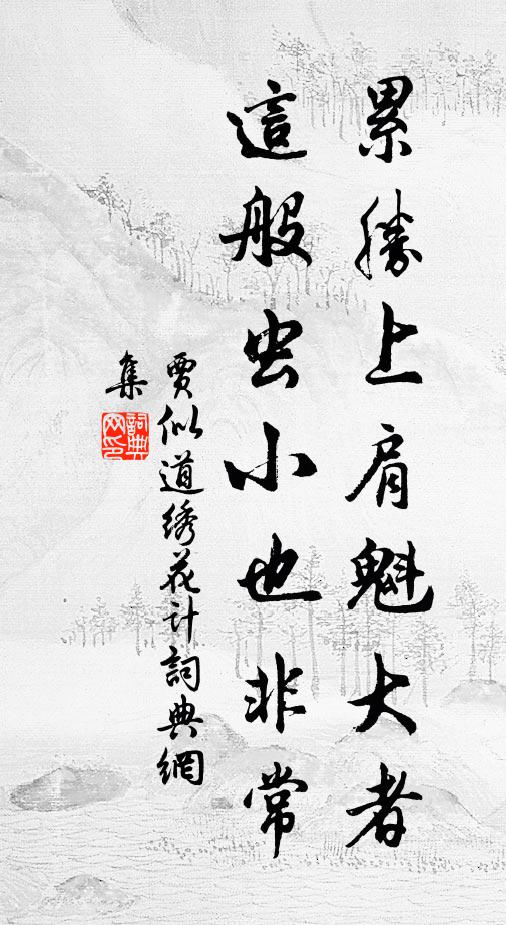 累勝上肩魁大者
這般虫小也非常
賈似道绣花计詞典網
集
詞典
网印